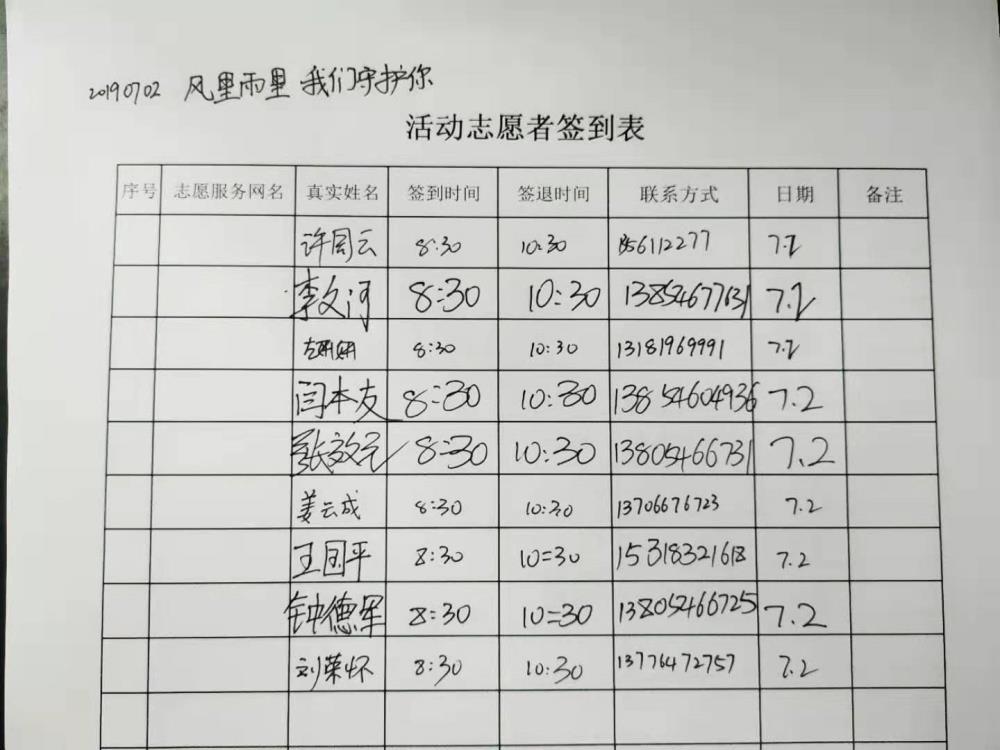 20190702 风里雨里 我们守护你
活动志愿者签到表
序号 志愿服务网名 真实姓名 签到时间 签退时间 联系方式 日期 备注
许同云 8:30 10:30 1356112277 7.2
李文河 8:30 10:30 13854677631 7.2
8:30 10:30 13181969991 7.2
闫本友 8:30 10:30 13854604936 7.2
张效元 8:30 10:30 13805466731 7.2
姜云成 8:30 10:30 13706676723 7.2
王国平 8:30 10=30 15318321618 7.2
钟德军 8:30 10=30 13805466725 7.2
刘荣怀 8:30 10:30 13776472757 7.2